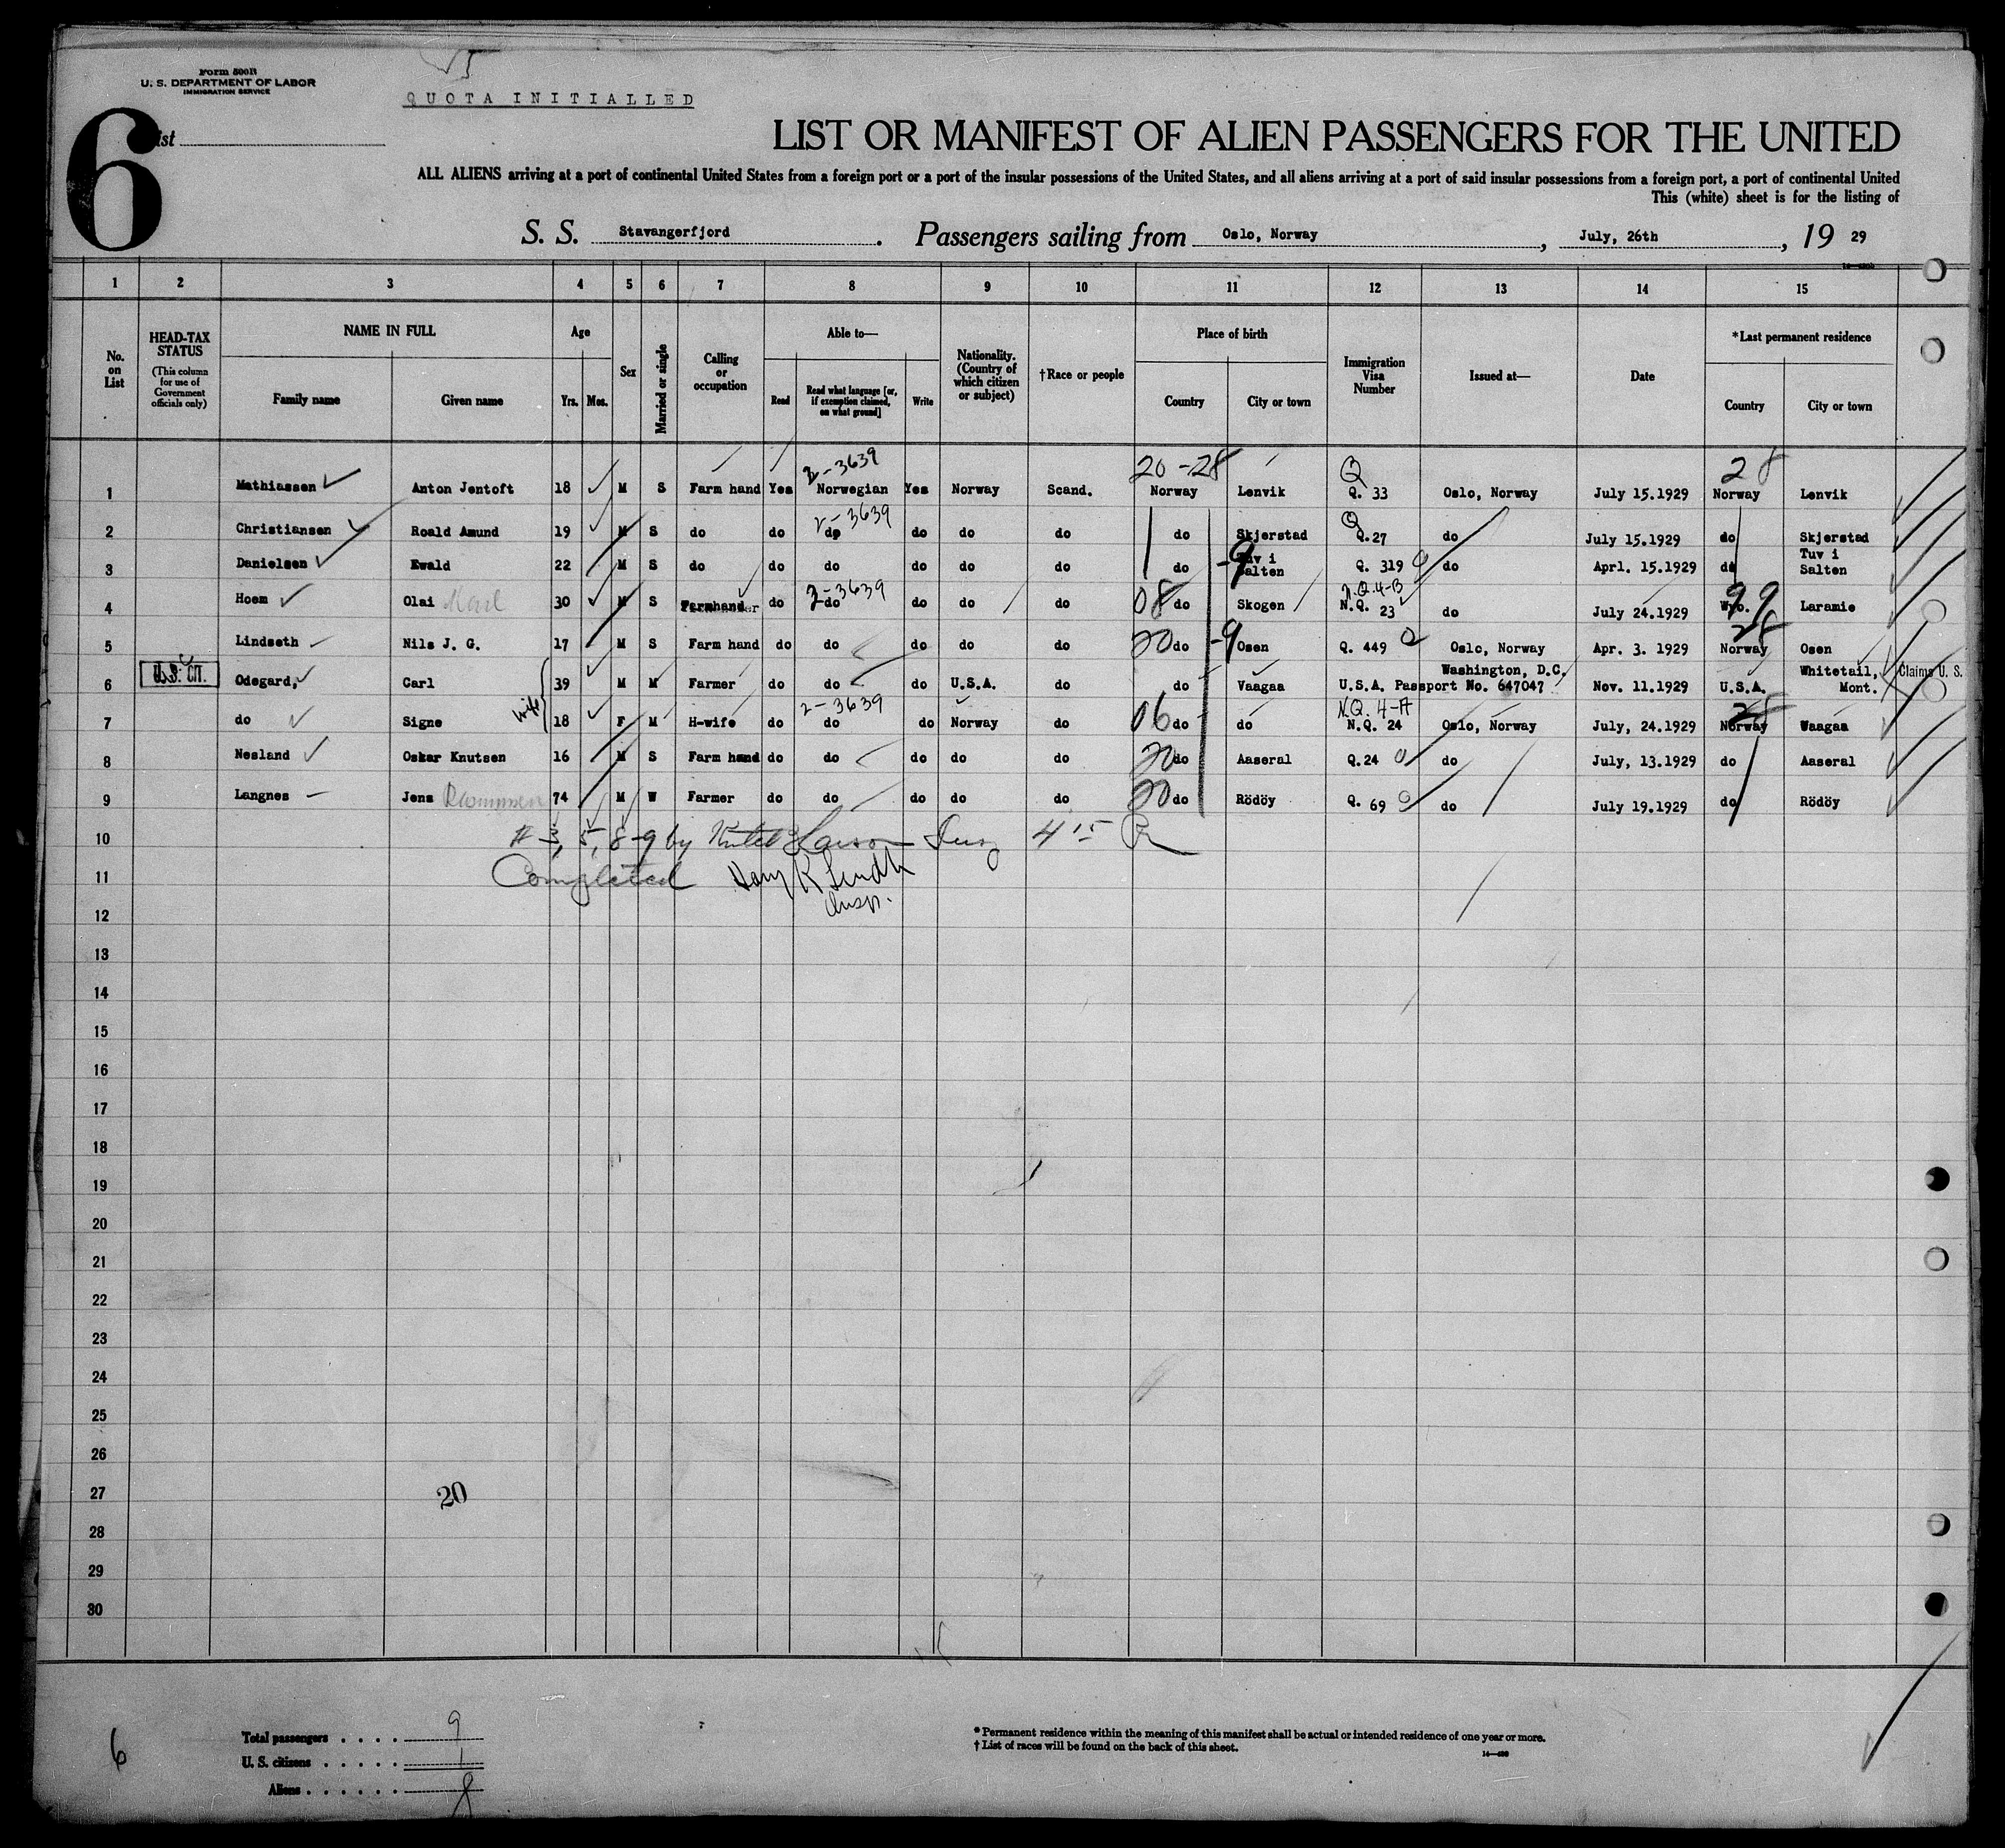 Form 500B
U. S. DEPARTMENT OF LABOR
IMMIGRATION SERVICE
QUOTA INITIALLED
6
List
LIST OR MANIFEST OF ALIEN PASSENGERS FOR THE UNITED
ALL ALIENS arriving at a port of continental United States from a foreign port or a port of the insular possessions of the United States, and all aliens arriving at a port of said insular possessions from a foreign port, a port of continental United
This (white) sheet is for the listing of
S. S. Stavangerfjord. Passengers sailing from Oslo, Norway, July, 26th, 19 29
1 2 3 4 5 6 7 8 9 10 11 12 13 14 15
No. on List HEAD-TAX STATUS (This column for use of Government officials only) NAME IN FULL Family name Given name Age Yrs. Mos. Sex Married or single Calling or occupation Able to— Read Read what language [or, if exemption claimed, on what ground] Write Nationality. (Country of which citizen or subject) †Race or people Place of birth Country City or town Immigration Visa Number Issued at— Date *Last permanent residence Country City or town
2-3639 20-28 Q 28
1 Mathiassen Anton Jentoft 18 M S Farm hand Yes Norwegian Yes Norway Scand. Norway Lenvik Q. 33 Oslo, Norway July 15.1929 Norway Lenvik
2-3639 Q
2 Christiansen Roald Amund 19 M S do do do do do do do Skjerstad Q.27 do July 15.1929 do Skjerstad
3 Danielsen Ewald 22 M S do do do do do do do -9 Tuv i Salten Q. 319 do Aprl. 15.1929 do Tuv i Salten
2-3639 N.Q.4-B 99
4 Hoem Olai 30 M S Farmhand do do do do do 08 do Skogen N.Q. 23 do July 24.1929 Wyo. Laramie
28
5 Lindseth Nils J. G. 17 M S Farm hand do do do do do 20 do -9 Osen Q. 449 Oslo, Norway Apr. 3. 1929 Norway Osen
6 U.S. CIT. Odegard, Carl 39 M M Farmer do do do U.S.A. do do Vaagaa U.S.A. Passport No. 647047 Washington, D.C. Nov. 11.1929 U.S.A. Whitetail, Mont. Claims U. S.
wife 2-3639 N.Q. 4-A 28
7 do Signe 18 F M H-wife do do do Norway do 06 do do N.Q. 24 Oslo, Norway July, 24.1929 Norway Waagaa
8 Nesland Oskar Knutsen 16 M S Farm hand do do do do do 20 do Aaseral Q.24 do July, 13.1929 do Aaseral
9 Langnes Jens 74 M W Farmer do do do do do 20 do Rödöy Q. 69 do July 19.1929 do Rödöy
10 # 3, 5, 8-9 by 4 15
11 Completed
Insp.
12
13
14
15
16
17
18
19
20
21
22
23
24
25
26
27 20
28
29
30
6
Total passengers . . . . 9
U. S. citizens . . . . . 1
Aliens . . . . . . 8
* Permanent residence within the meaning of this manifest shall be actual or intended residence of one year or more.
† List of races will be found on the back of this sheet.